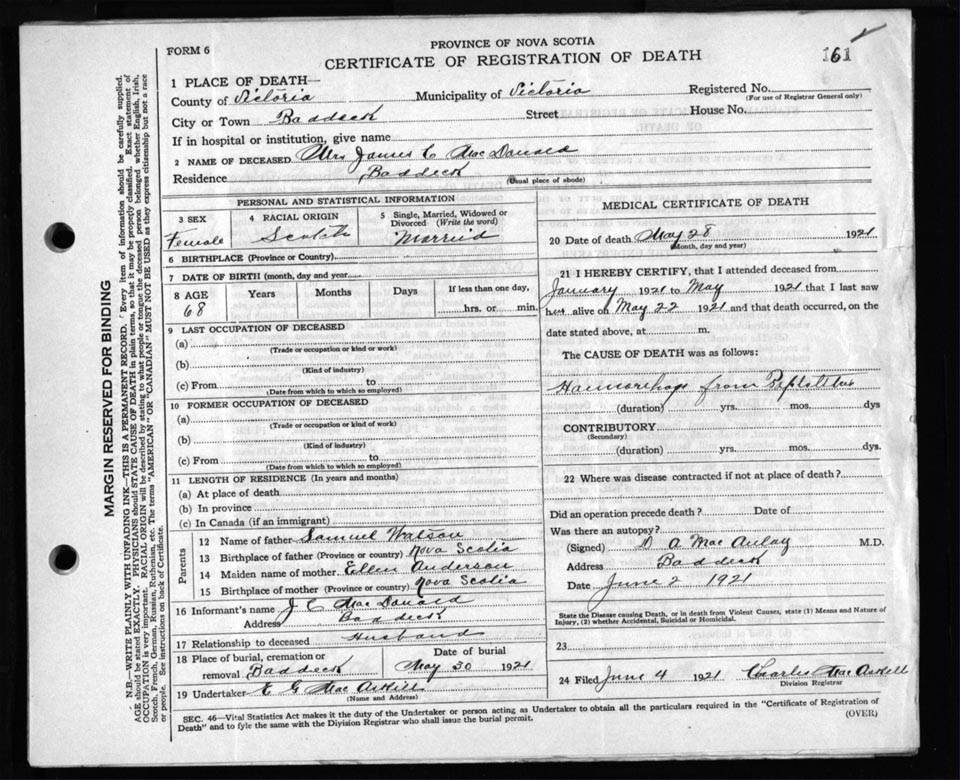 FORM 6
PROVINCE OF NOVA SCOTIA
CERTIFICATE OF REGISTRATION OF DEATH
161
1 PLACE OF DEATH—
County of Victoria Municipality of Victoria Registered No.
(For use of Registrar General only)
City or Town Baddeck Street House No.
If in hospital or institution, give name
2 NAME OF DECEASED Mrs James C MacDonald
Residence Baddeck (Usual place of abode)
PERSONAL AND STATISTICAL INFORMATION
3 SEX
Female
4 RACIAL ORIGIN
Scotch
5 Single, Married, Widowed or Divorced (Write the word)
Married
6 BIRTHPLACE (Province or Country)
7 DATE OF BIRTH (month, day and year)
8 AGE Years Months Days If less than one day,
68 hrs. or min.
9 LAST OCCUPATION OF DECEASED
(a)
(Trade or occupation or kind or work)
(b)
(Kind of industry)
(c) From to
(Date from which to which so employed)
10 FORMER OCCUPATION OF DECEASED
(a)
(Trade or occupation or kind of work)
(b)
(Kind of industry)
(c) From to
(Date from which to which so employed)
11 LENGTH OF RESIDENCE (In years and months)
(a) At place of death
(b) In province
(c) In Canada (if an immigrant)
Parents
12 Name of father Samuel Watson
13 Birthplace of father (Province or country) Nova Scotia
14 Maiden name of mother Ellen Anderson
15 Birthplace of mother (Province or country) Nova Scotia
16 Informant's name J C MacDonald
Address Baddeck
17 Relationship to deceased Husband
18 Place of burial, cremation or removal Baddeck Date of burial May 30 1921
19 Undertaker E G MacAskill
(Name and Address)
MEDICAL CERTIFICATE OF DEATH
20 Date of death May 28 1921
(Month, day and year)
21 I HEREBY CERTIFY, that I attended deceased from
January 1921 to May 1921 that I last saw
her alive on May 22 1921 and that death occurred, on the
date stated above, at m.
The CAUSE OF DEATH was as follows:
Haemorrhage from
(duration) yrs. mos. dys
CONTRIBUTORY
(Secondary)
(duration) yrs. mos. dys.
22 Where was disease contracted if not at place of death?
Did an operation precede death? Date of
Was there an autopsy?
(Signed) D A MacAulay M.D.
Address Baddeck
Date June 2 1921
State the Disease causing Death, or in death from Violent Causes, state (1) Means and Nature of
Injury, (2) whether Accidental, Suicidal or Homicidal.
23
24 Filed June 4 1921 Charles MacAskill
Division Registrar
SEC. 46—Vital Statistics Act makes it the duty of the Undertaker or person acting as Undertaker to obtain all the particulars required in the "Certificate of Registration of
Death" and to fyle the same with the Division Registrar who shall issue the burial permit.
(OVER)
MARGIN RESERVED FOR BINDING
N.B.—WRITE PLAINLY WITH UNFADING INK—THIS IS A PERMANENT RECORD. Every item of information should be carefully supplied.
AGE should be stated EXACTLY. PHYSICIANS should STATE CAUSE OF DEATH in plain terms, so that it may be properly classified. Exact statement of
OCCUPATION is very important. RACIAL ORIGIN will be described by stating to what people or tongue the deceased person belonged whether English, Irish,
Scotch, French, German, Russian, Ruthenian, etc. The terms "AMERICAN" OR "CANADIAN" MUST NOT BE USED as they express citizenship but not a race
or people. See instructions on back of Certificate.